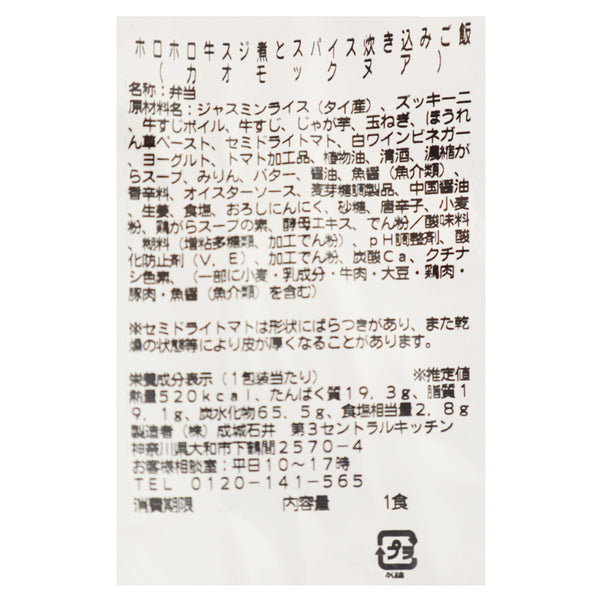 ホロホロ牛スジ煮とスパイス炊き込みご飯
（カオモックヌア）
名称：弁当
原材料名：ジャスミンライス（タイ産）、ズッキーニ
、牛すじボイル、牛すじ、じゃが芋、玉ねぎ、ほうれ
ん草ペースト、セミドライトマト、白ワインビネガー
、ヨーグルト、トマト加工品、植物油、清酒、濃縮が
らスープ、みりん、バター、醤油、魚醤（魚介類）、
香辛料、オイスターソース、麦芽糖調製品、中国醤油
、生姜、食塩、おろしにんにく、砂糖、唐辛子、小麦
粉、鶏がらスープの素、酵母エキス、でん粉／酸味料
、糊料（増粘多糖類、加工でん粉）、ｐＨ調整剤、酸
化防止剤（Ｖ．Ｅ）、加工でん粉、炭酸Ｃａ、クチナ
シ色素、（一部に小麦・乳成分・牛肉・大豆・鶏肉・
豚肉・魚醤（魚介類）を含む）
※セミドライトマトは形状にばらつきがあり、また乾
燥の状態等により皮が厚くなることがあります。
栄養成分表示（１包装当たり）　※推定値
熱量５２０ｋｃａｌ、たんぱく質１９．３ｇ、脂質１
９．１ｇ、炭水化物６５．５ｇ、食塩相当量２．８ｇ
製造者（株）成城石井　第３セントラルキッチン
神奈川県大和市下鶴間２５７０－４
お客様相談室：平日１０～１７時
ＴＥＬ　０１２０－１４１－５６５
消費期限　内容量　１食
プラ